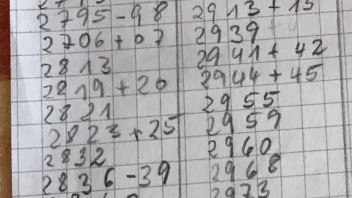 2795-98
2706+07
2813
2819+20
2821
2823+25
2832
2836-39
2913+15
2939
2941+42
2944+45
2955
2959
2960
2968
2973